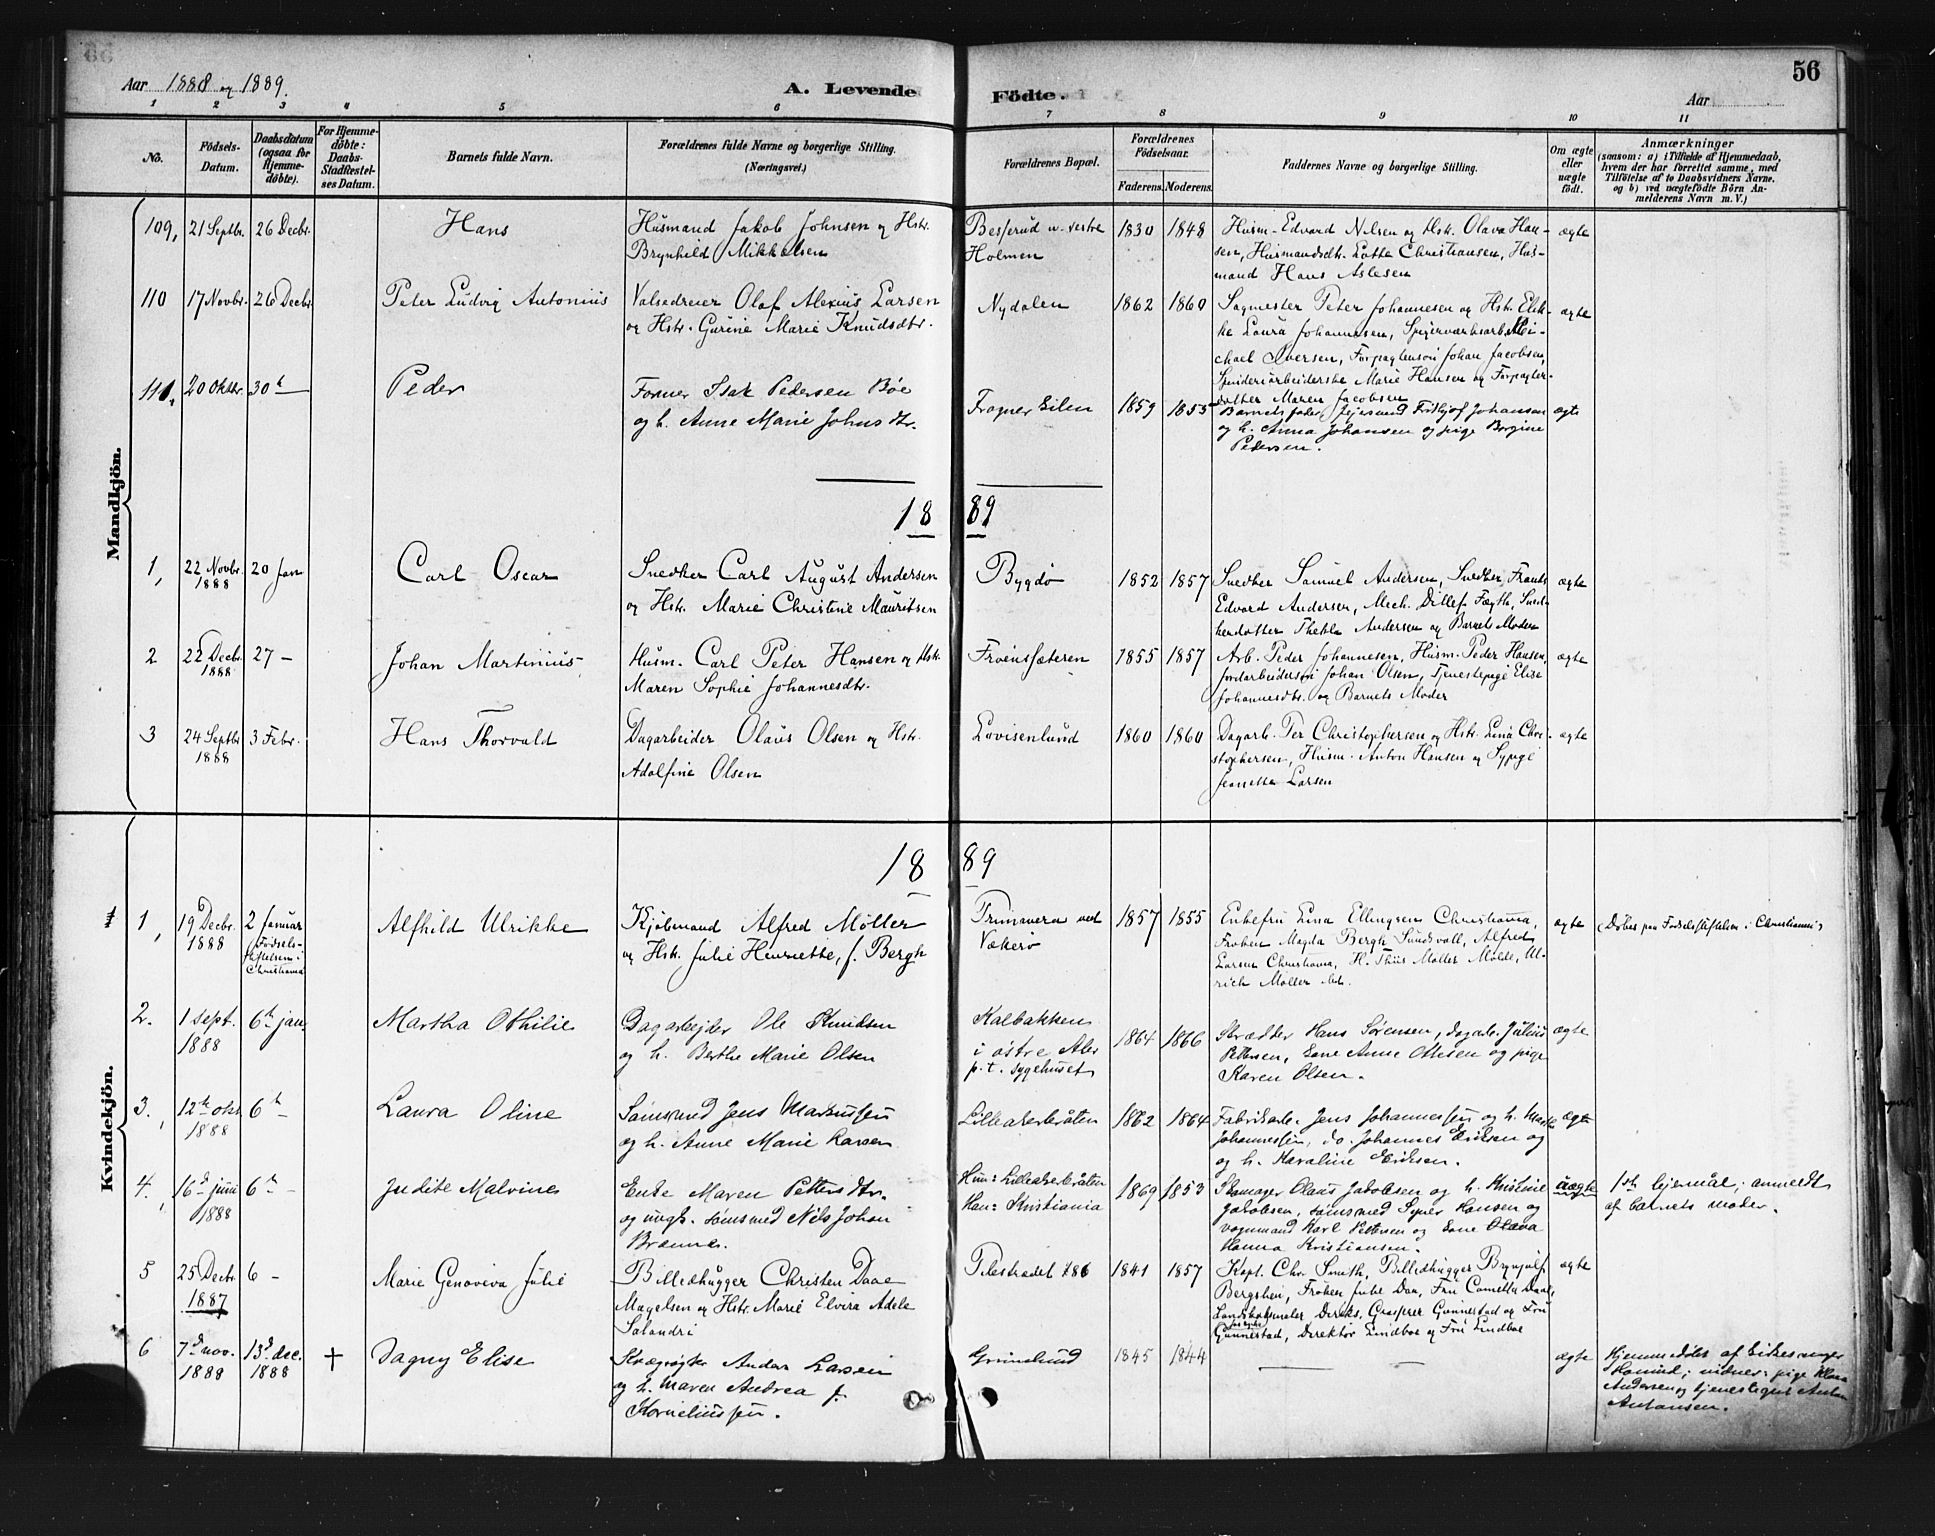 56
Aar 1888 og 1889.
A. Levende Födte.
Aar
1 2 3 4 5 6 7 8 9 10 11
No.
Födsels-Datum.
Daabsdatum (ogsaa for Hjemme-döbte).
For Hjemme-döbte: Daabs-Stadfæstel-ses Datum.
Barnets fulde Navn.
Forældrenes fulde Navne og borgerlige Stilling. (Næringsvei.)
Forældrenes Bopæl.
Forældrenes Födselsaar.
Faderens. Moderens.
Faddernes Navne og borgerlige Stilling.
Om ægte eller uægte födt.
Anmærkninger
(saasom: a) i Tilfælde af Hjemmedaab, hvem der har forrettet samme, med Tilföielse af to Daabsvidners Navne, og b) ved uægtefödte Börn An-melderens Navn m. V.)
Mandkjön.
109, 21 Septbr. 26 Decbr. Hans
Husmand Jakob Johnsen og Hstr.
Brynhild Mikkelsen
Besserud u. vestre
Holmen
1830 1848
Husm. Edvard Nilsen og Hst. Olava Han-
sen, Husmandsdtr. Lotte Christiansen, Hus-
mand Hans Aslesen
ægte
110 17 Novbr. 26 Decbr. Peter Ludvig Antonius
Valsedreier Olaf Alexius Larsen
og Hstr. Gurine Marie Knudsdtr.
Nydalen
1862 1860
Sagmester Peter Johannesen og Hstr. Elik-
ke Laura Johannesen, Spigerværksarb. Mi-
chael Iversen, Forpagterson Johan Jacobsen,
Spinderiarbeiderske Marie Hansen og Forpagter-
datter Maren Jacobsen
ægte
111, 20 Oktbr. 30t — Peder
Former Isak Pedersen Bøe
og h. Anne Marie Johnsdtr.
Frogner Eilen
1859 1855
Barnets fader, Leiesvend Fridtjof Johansen
og h. Anna Johansen og pige Borgine
Pedersen.
ægte
18 89
1, 22 Novbr. 1888 20 Jan Carl Oscar
Snedker Carl August Andersen
og Hstr. Marie Christine Mauritsen
Bygdø
1852 1857
Snedker Samuel Andersen, Snedker Frants
Edvard Andersen, Mech. Dillef Fægth, Sned-
kerdatter Thekla Andersen og Barnets Moder
ægte
2 22 Decbr. 1888 27 — Johan Martinius
Husm. Carl Peter Hansen og Hstr.
Maren Sophie Johannesdtr.
Frøensfæteren
1855 1857
Arb. Peder Johannesen, Husm. Peder Hansen,
Jordarbeiderson Johan Olsen, Tjenestepige Elise
Johannesdtr. og Barnets Moder
ægte
3 24 Septbr. 1888 3 Febr. Hans Thorvald
Dagarbeider Olaus Olsen og Hstr.
Adolfine Olsen
Lovisenlund
1860 1860
Dagarb. Per Christophersen og Hstr. Lina Chri-
stophersen, Husm. Anton Hansen og Sypige
Jeanette Larsen
ægte
Kvindekjön.
18 89
1, 19 Decbr. 1888 2 Januar (Fødsels-stiftelsen i Christiania Alfhild Ulrikke
Kjøbmand Alfred Møller
og Hstr. Julie Henriette, f. Bergh
Primavera ved
Vækerø
1857 1855
Enkefru Lina Ellingsen Christiania,
Frøken Magda Bergh Sundsvall, Alfred
Larsen Christiania, H. Thiis Møller Molde, Ul-
rich Møller
ægte
(Døbes paa Fødselsstiftelsen i Christiania)
2. 1 Sept. 1888 6te jan. Martha Othilie
Dagarbejder Ole Knudsen
og h. Berthe Marie Olsen
Kalbakken
i østre Aker
p.t. Sygehuset
1864 1866
Skrædder Hans Sørensen, dagarb. Julius
Pettersen, Enke Anne Ottesen og pige
Karen Olsen.
ægte
3., 12te okt. 1888 6te — Laura Oline
Sømsmed Jens Markussen
og h. Anne Marie Larsen
Lilleakerbråten
1862 1864
Fabriksarb. Jens Johannessen og h. Marthe
Johannessen, do. Johannes Eriksen og
og h. Karoline Eriksen.
ægte
4., 16de juni 1888 6te — Judite Malvine
Enke Maren Pettersdtr.
og ungk. sømsmed Nils Johan
Brænne.
Hun: Lilleakerbråten
Han: Kristiania
1869 1853
Skomager Olaus Jakobsen og h. Kristine
Jakobsen, sømsmed Syver Hansen og
vognmand Karl Pettersen og Enke Olava
Hanna Kristiansen.
uægte
1ste lejermål; anmeldt
af barnets moder.
5 25 Decbr. 1887 6 — Marie Genoviva Julie
Billedhugger Christen Daae
Magelsen og Hstr. Marie Elvira Adele
Salandri
Pilestrædet 86
1841 1857
Kapt. Chr. Smith, Billedhugger Brynjulf
Bergslien, Frøken Julie Daa, Fru Camilla Daae,
Landskabsmaler Diriks, Grosserer Gunnestad og Fru
Gunnestad, Direktør Lindboe og Fru Lindboe
ægte
6 7de nov. 1888 13de dec. 1888 + Dagny Elise
Kvægrøgter Anders Larsen
og h. Maren Andrea f.
Korneliussen.
Grimelund
1845 1844
— —
ægte
Hjemmedøbt af Kirkesanger
; vidner: pige Klara
Andersen og tjenestepige Anna
Antonsen.